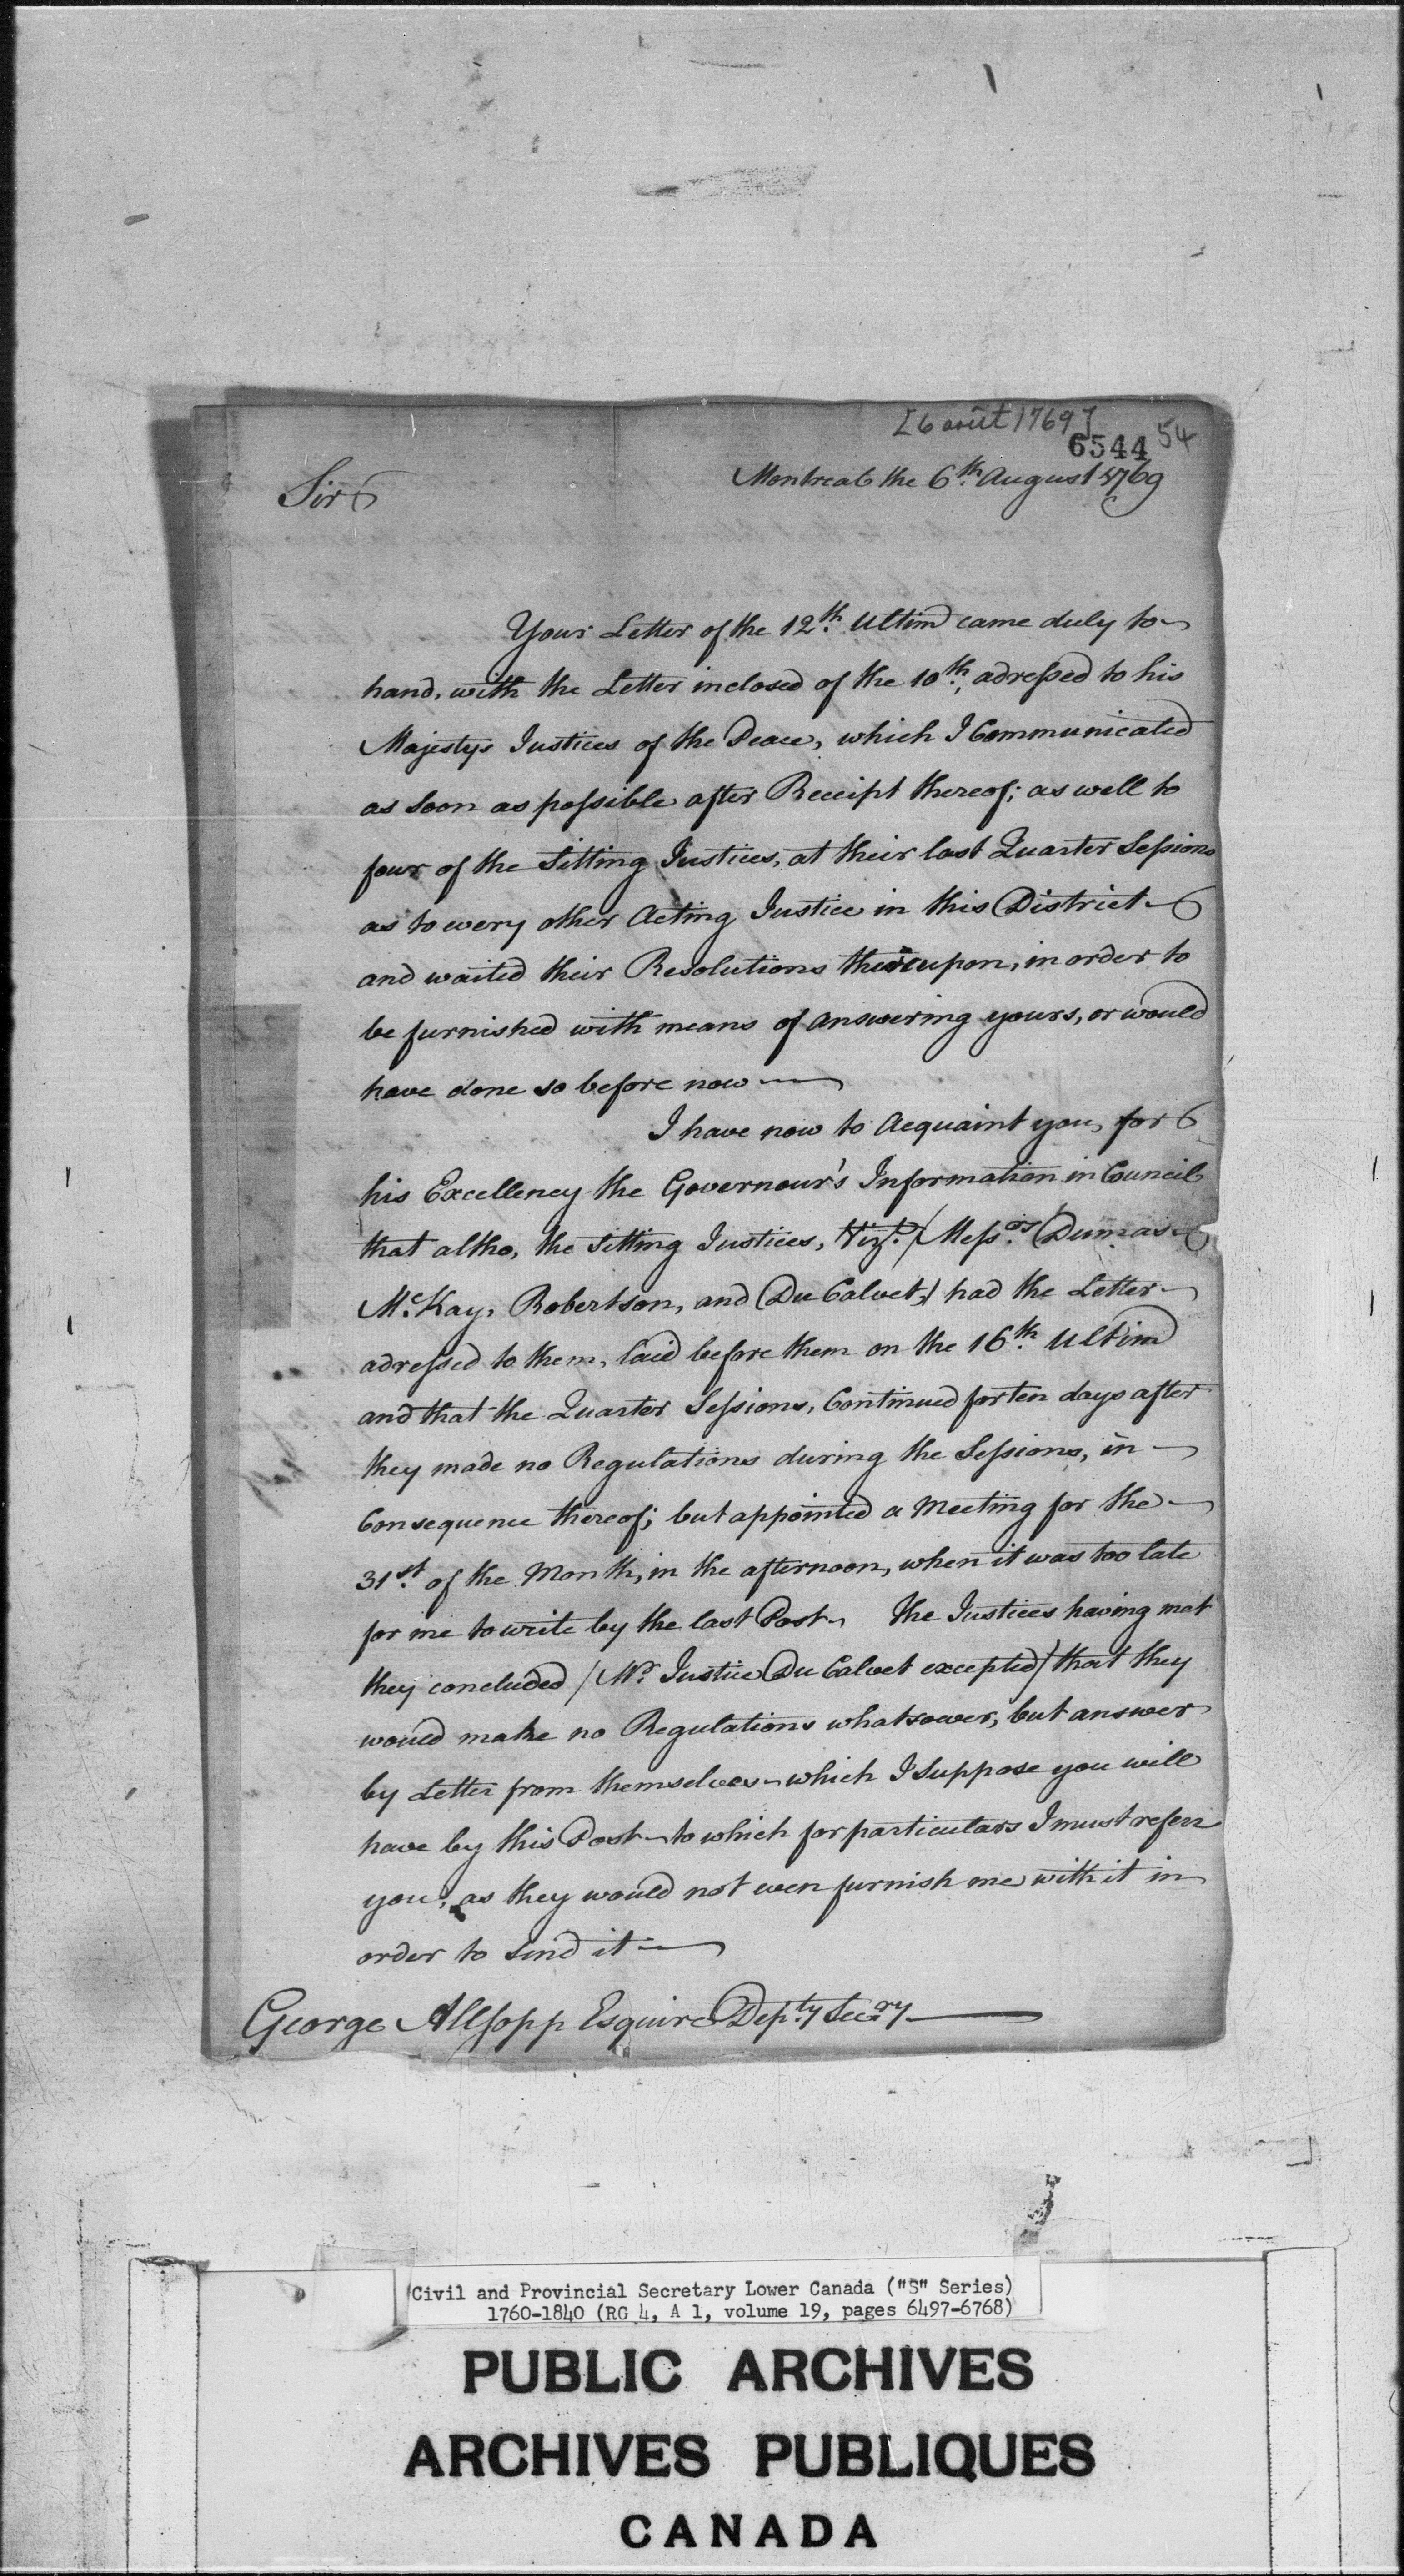 [6 août 1769]
6544 54
Montreal the 6th. August 1769
Sir
Your Letter of the 12th. Ultimo came duly to
hand, with the Letter inclosed of the 10th, adressed to his
Majestys Justices of the Peace, which I Communicated
as soon as possible after Receipt thereof; as well to
four of the Sitting Justices, at their last Quarter Sessions
as to every other Acting Justice in this District
and waited their Resolutions thereupon, in order to
be furnished with means of answering yours, or would
have done so before now
I have now to Acquaint you, for
his Excellency the Governour's Information in Council
that altho, the Sitting Justices, Vizt. / Messrs. Dumas
Mc.Kay, Robertson, and Du Calvet,/ had the Letter
adressed to them, laid before them on the 16th. Ultimo
and that the Quarter Sessions, Continued for ten days after
they made no Regulations during the Sessions, in
Consequence thereof; but appointed a Meeting for the
31st. of the Month, in the afternoon, when it was too late
for me to write by the last Post. The Justices having met
they concluded / Mr. Justice Du Calvet excepted / that they
would make no Regulations whatsoever, but answer
by Letter from themselves which I Suppose you will
have by this Post to which for particulars I must referr
you, as they would not even furnish me with it in
order to send it
George Allsopp Esquire Depty Secry
Civil and Provincial Secretary Lower Canada ("S" Series)
1760-1840 (RG 4, A 1, volume 19, pages 6497-6768)
PUBLIC ARCHIVES
ARCHIVES PUBLIQUES
CANADA